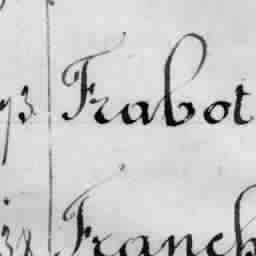 93 Frabot
38 Franch